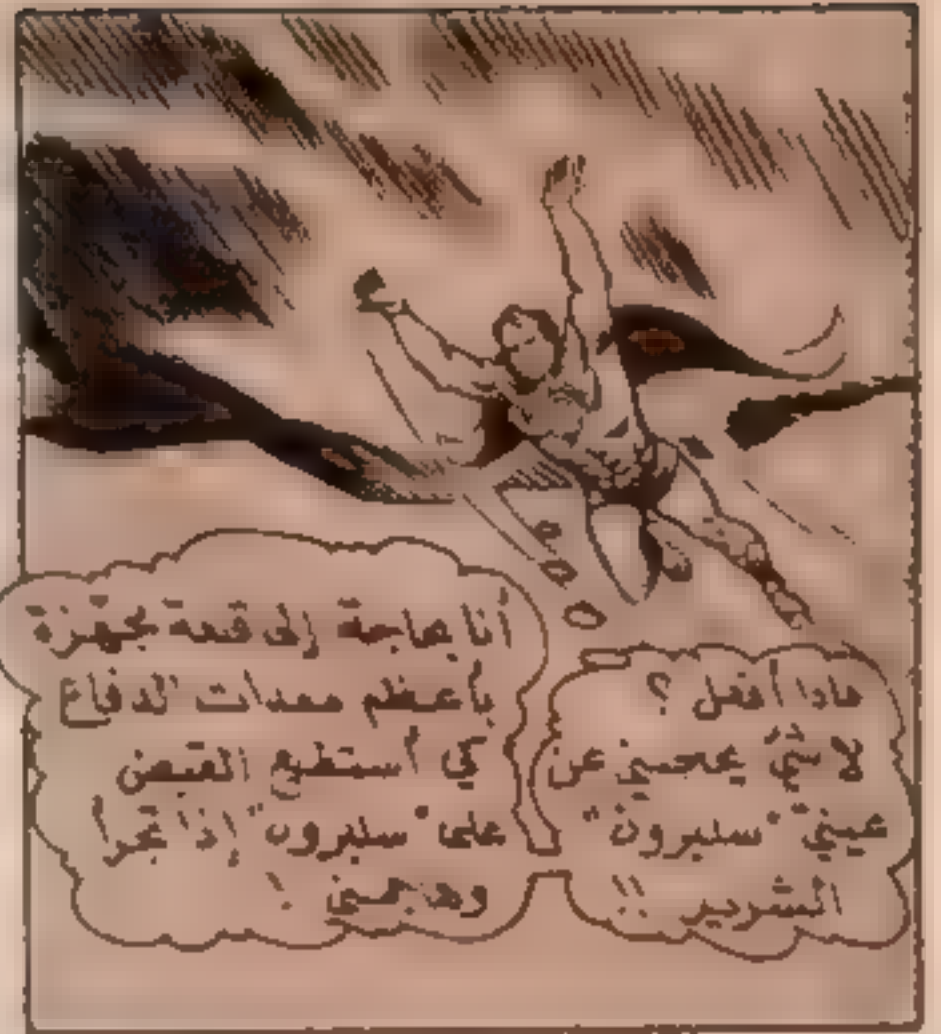 ماذا أفعل ؟
لا شيء يحميني عن
عينيّ "سلبرون"
الشرير !!
أنا بحاجة إلى قلعة مجهزة
بأعظم معدات الدفاع
كي أستطيع القبض
على "سلبرون" إذا تجرأ
وهاجمني .